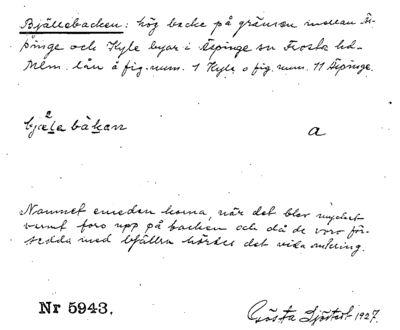 Bjällebacken: hög backe på gränsen mellan Äs-
pinge och Kyle byar i Äspinge sn Frosta hd.
Mlm. län å fig. num. 1 Kyle o fig. num. 11 Äspinge.
bjæla bákan a
Namnet emedan korna, när det blev mycket
varmt foro upp på backen och då de voro för-
sedda med bjällra hördes det vida omkring.
Nr 5943.
Gösta Sjöstedt 1927.